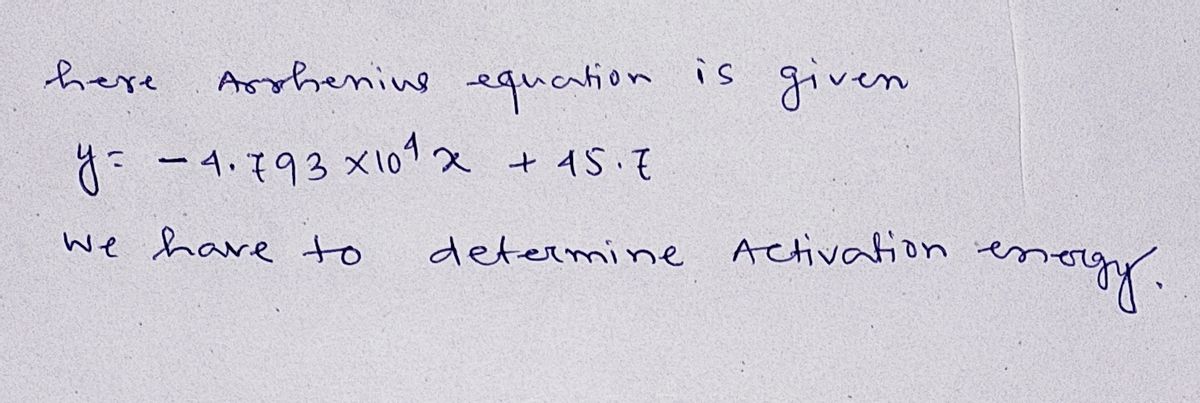 here Arrhenius equation is given
y = - 4.793 × 10⁴ x + 45.7
We have to determine Activation energy.